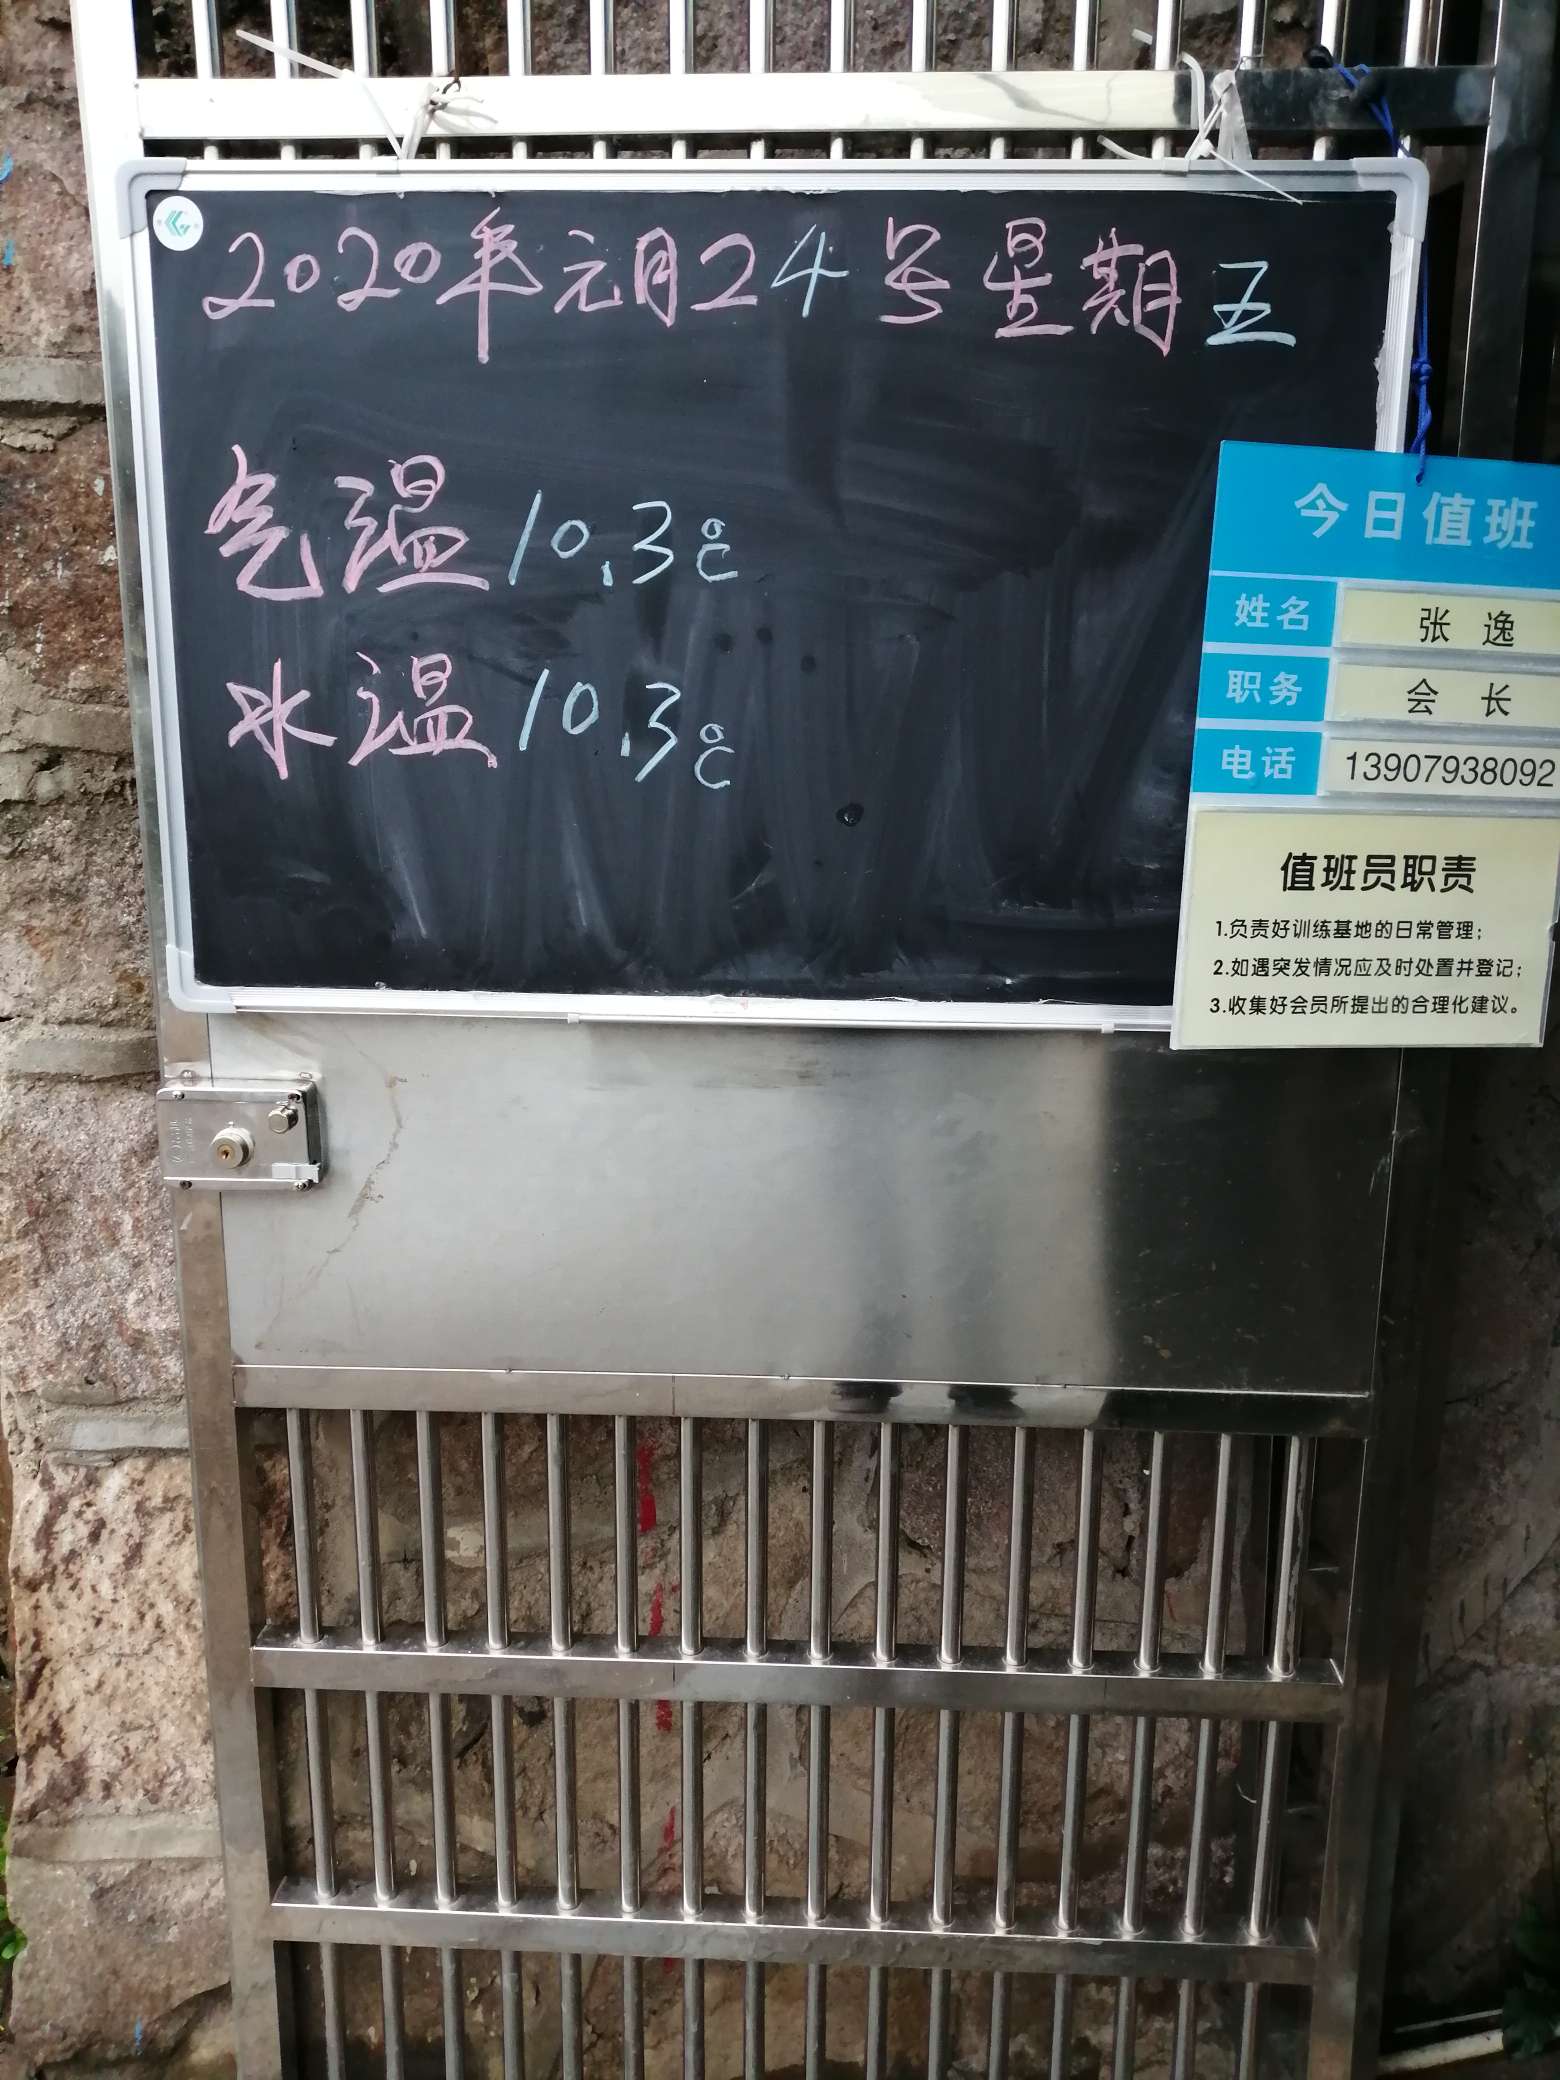 2020年元月24号星期五
气温10.3℃
水温10.3℃
今日值班
姓名 张逸
职务 会长
电话 13907938092
值班员职责
1.负责好训练基地的日常管理；
2.如遇突发情况应及时处置并登记；
3.收集好会员所提出的合理化建议。